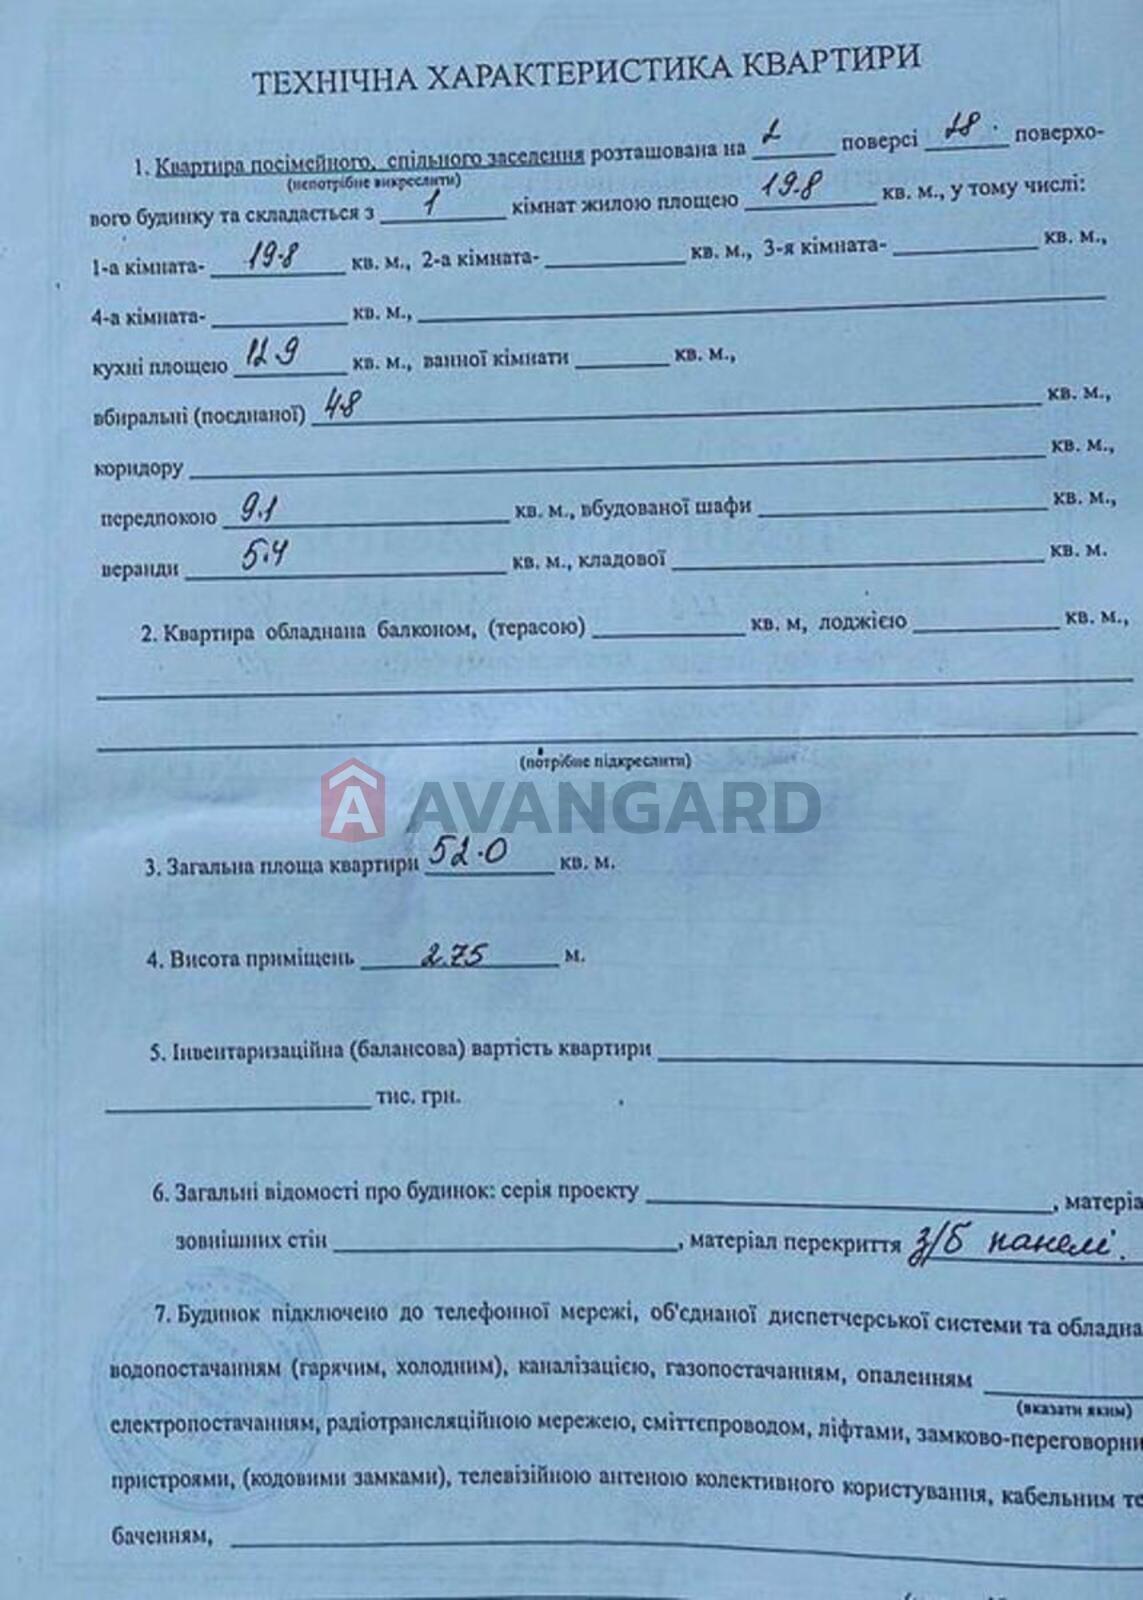 ТЕХНІЧНА ХАРАКТЕРИСТИКА КВАРТИРИ
1. Квартира посімейного, спільного заселення розташована на 2 поверсі 28 поверхо-
(непотрібне викреслити)
вого будинку та складається з 1 кімнат жилою площею 19.8 кв. м., у тому числі:
1-а кімната- 19.8 кв. м., 2-а кімната- кв. м., 3-я кімната- кв. м.,
4-а кімната- кв. м.,
кухні площею 12.9 кв. м., ванної кімнати кв. м.,
вбиральні (поєднаної) 4.8 кв. м.,
коридору кв. м.,
передпокою 9.1 кв. м., вбудованої шафи кв. м.,
веранди 5.4 кв. м., кладової кв. м.
2. Квартира обладнана балконом, (терасою) кв. м, лоджією кв. м.,
(потрібне підкреслити)
AVANGARD
3. Загальна площа квартири 52.0 кв. м.
4. Висота приміщень 2.75 м.
5. Інвентаризаційна (балансова) вартість квартири
тис. грн.
6. Загальні відомості про будинок: серія проекту , матеріа
зовнішних стін , матеріал перекриття з/б панелі.
7. Будинок підключено до телефонної мережі, об'єднаної диспетчерської системи та обладна
водопостачанням (гарячим, холодним), каналізацією, газопостачанням, опаленням
(вказати яким)
електропостачанням, радіотрансляційною мережею, сміттєпроводом, ліфтами, замково-переговорни
пристроями, (кодовими замками), телевізійною антеною колективного користування, кабельним те
баченням,